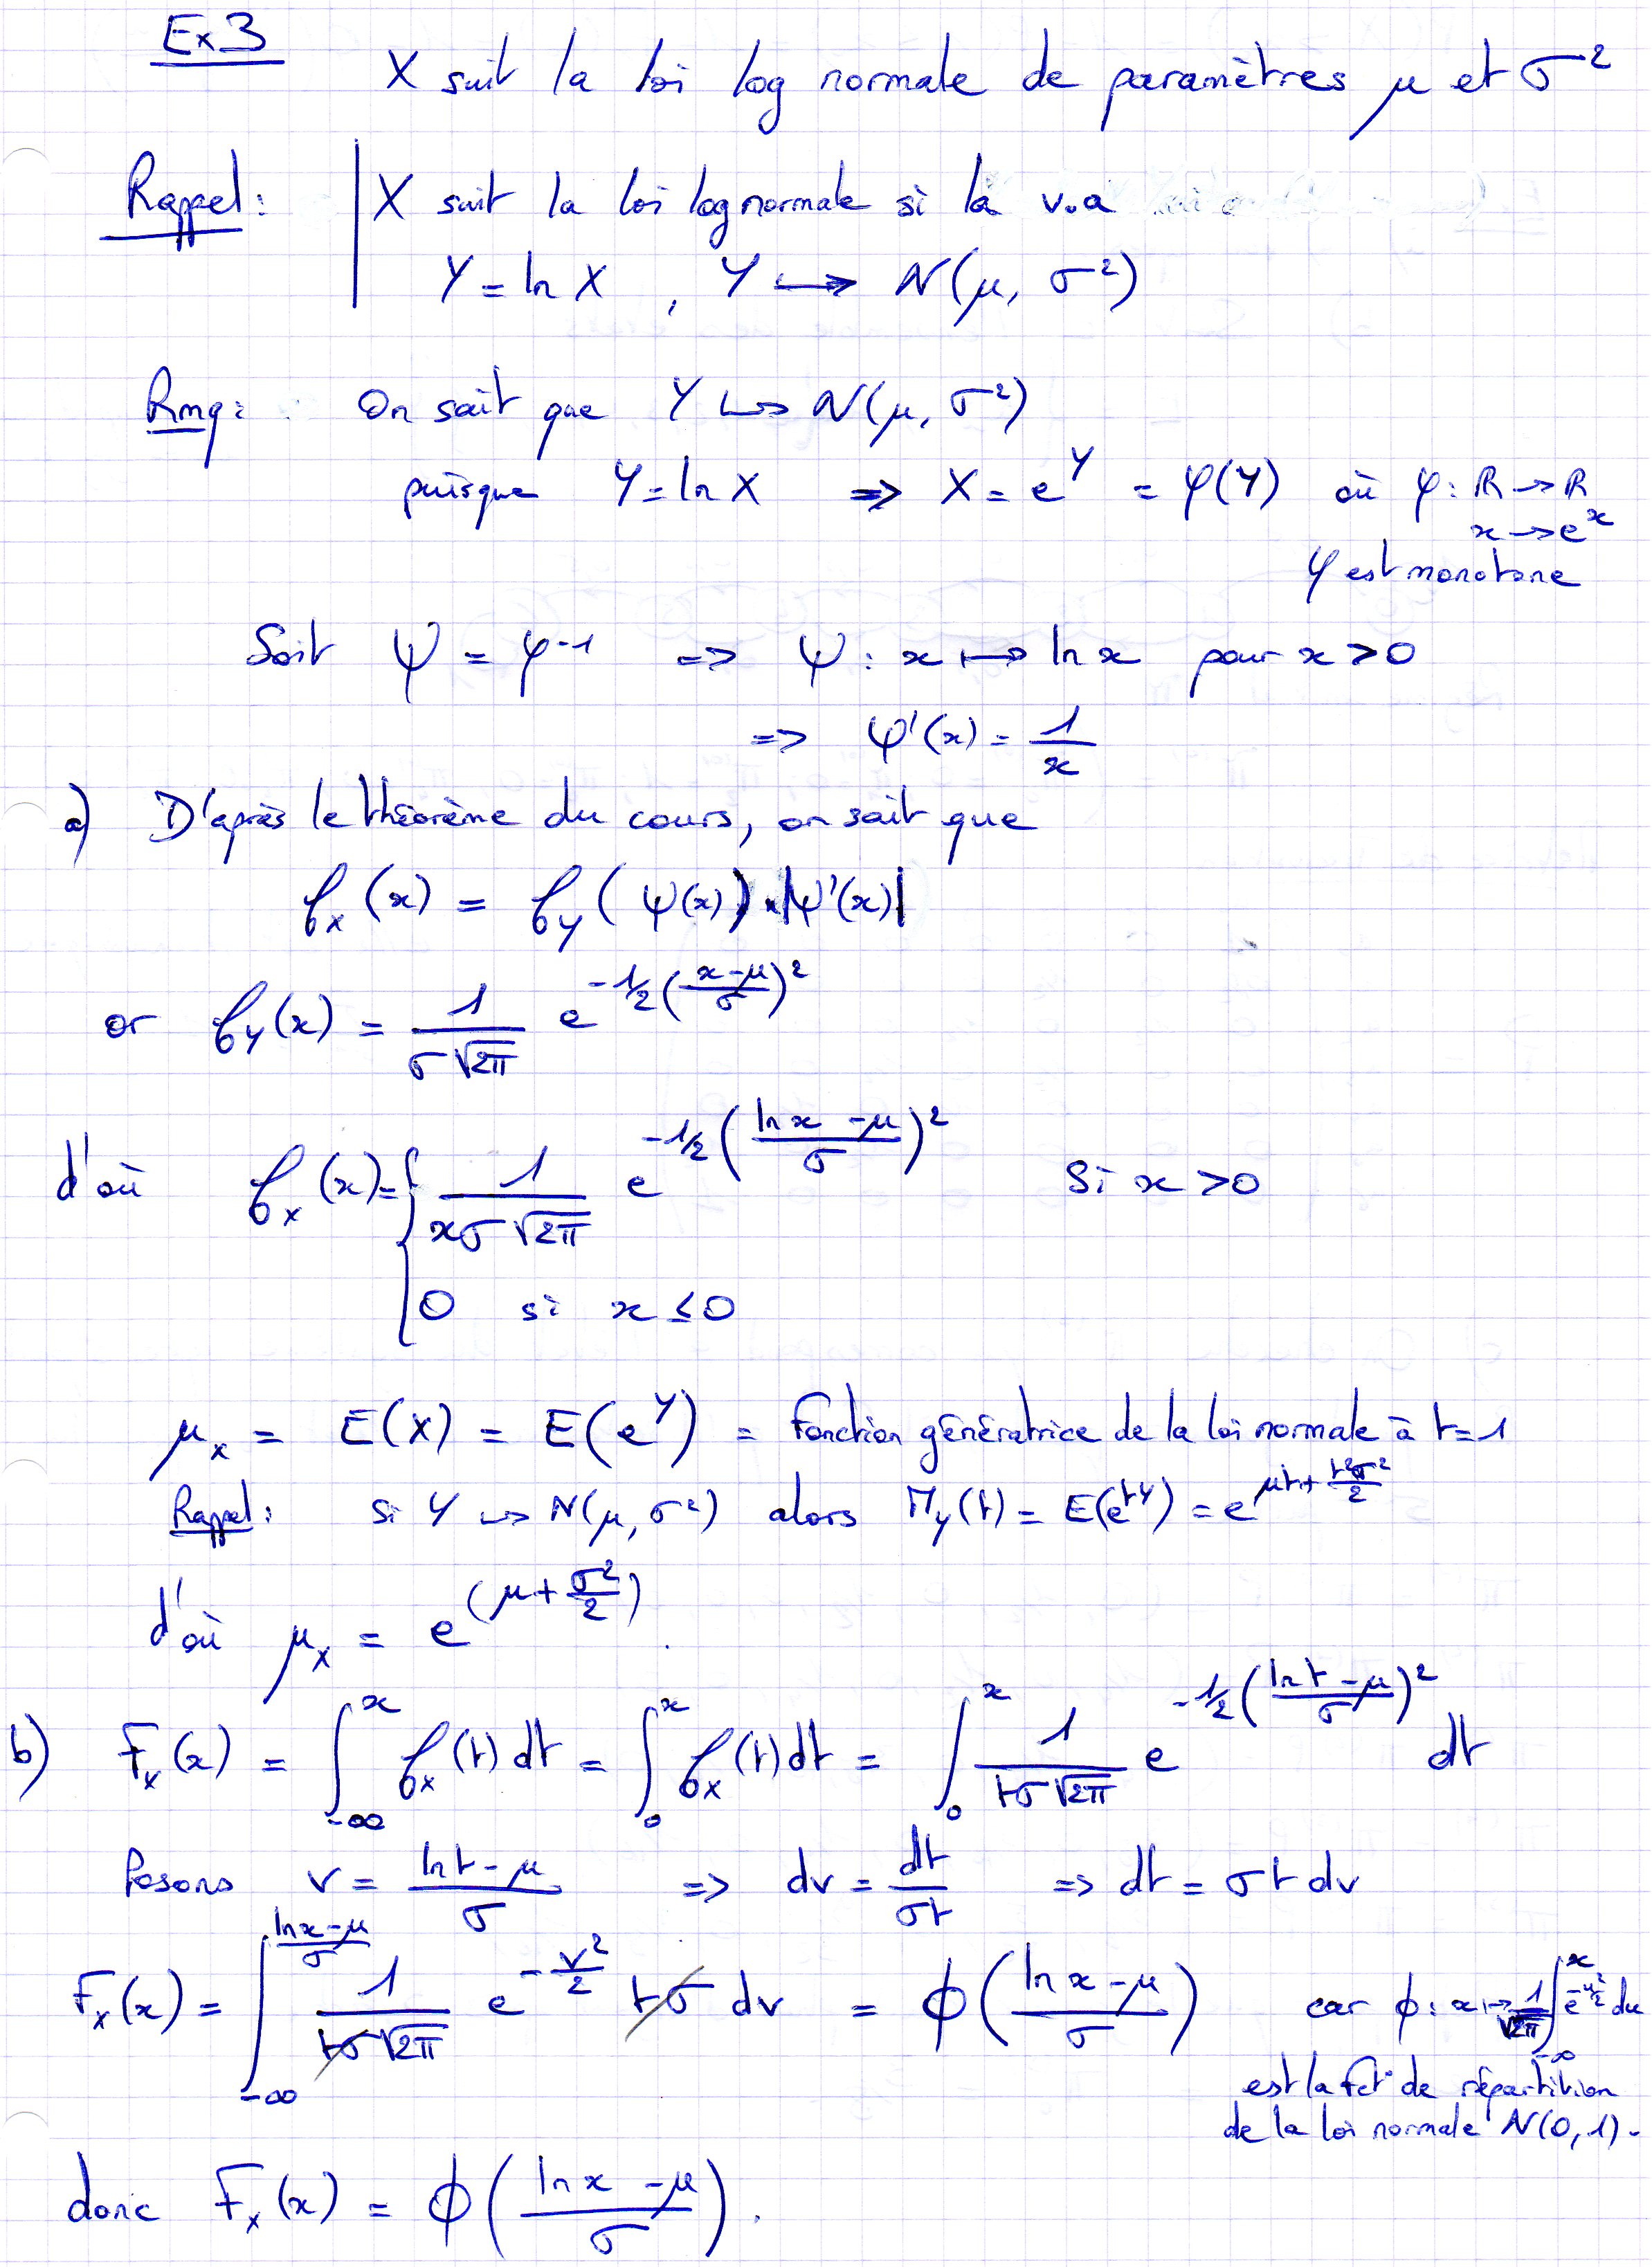 Ex 3
X suit la loi log normale de paramètres μ et σ²
Rappel : X suit la loi lognormale si la v.a
Y = ln X , Y ↪ N(μ, σ²)
Rmq : On sait que Y ↪ N(μ, σ²)
puisque Y = ln X => X = e^Y = φ(Y) où φ : ℝ → ℝ
x → e^x
φ est monotone
Soit ψ = φ^-1 => ψ : x ↦ ln x pour x > 0
=> ψ'(x) = 1/x
a) D'après le théorème du cours, on sait que
f_X(x) = f_Y(ψ(x)) × |ψ'(x)|
or f_Y(x) = 1/(σ√2π) e^(-1/2((x-μ)/σ)²)
d'où f_X(x) = { 1/(xσ√2π) e^(-1/2((ln x - μ)/σ)²) Si x > 0
0 si x ≤ 0
μ_X = E(X) = E(e^Y) = Fonction génératrice de la loi normale à t=1
Rappel : si Y ↪ N(μ, σ²) alors M_Y(t) = E(e^tY) = e^(μt + t²σ²/2)
d'où μ_X = e^(μ + σ²/2).
b) F_X(x) = ∫_-∞^x f_X(t) dt = ∫_0^x f_X(t) dt = ∫_0^x 1/(tσ√2π) e^(-1/2((ln t - μ)/σ)²) dt
Posons v = (ln t - μ)/σ => dv = dt/(σt) => dt = σ t dv
F_X(x) = ∫_-∞^((ln x - μ)/σ) 1/(tσ√2π) e^(-v²/2) tσ dv = ϕ((ln x - μ)/σ) car ϕ : x ↦ 1/√2π ∫_-∞^x e^(-u²/2) du
est la fct° de répartition
de la loi normale N(0,1).
donc F_X(x) = ϕ((ln x - μ)/σ).